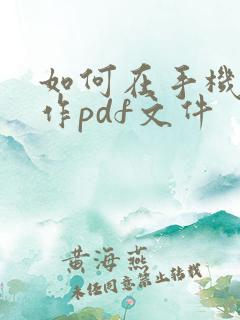 如何在手機
作pdf文件
黄海燕
未经同意禁止转载